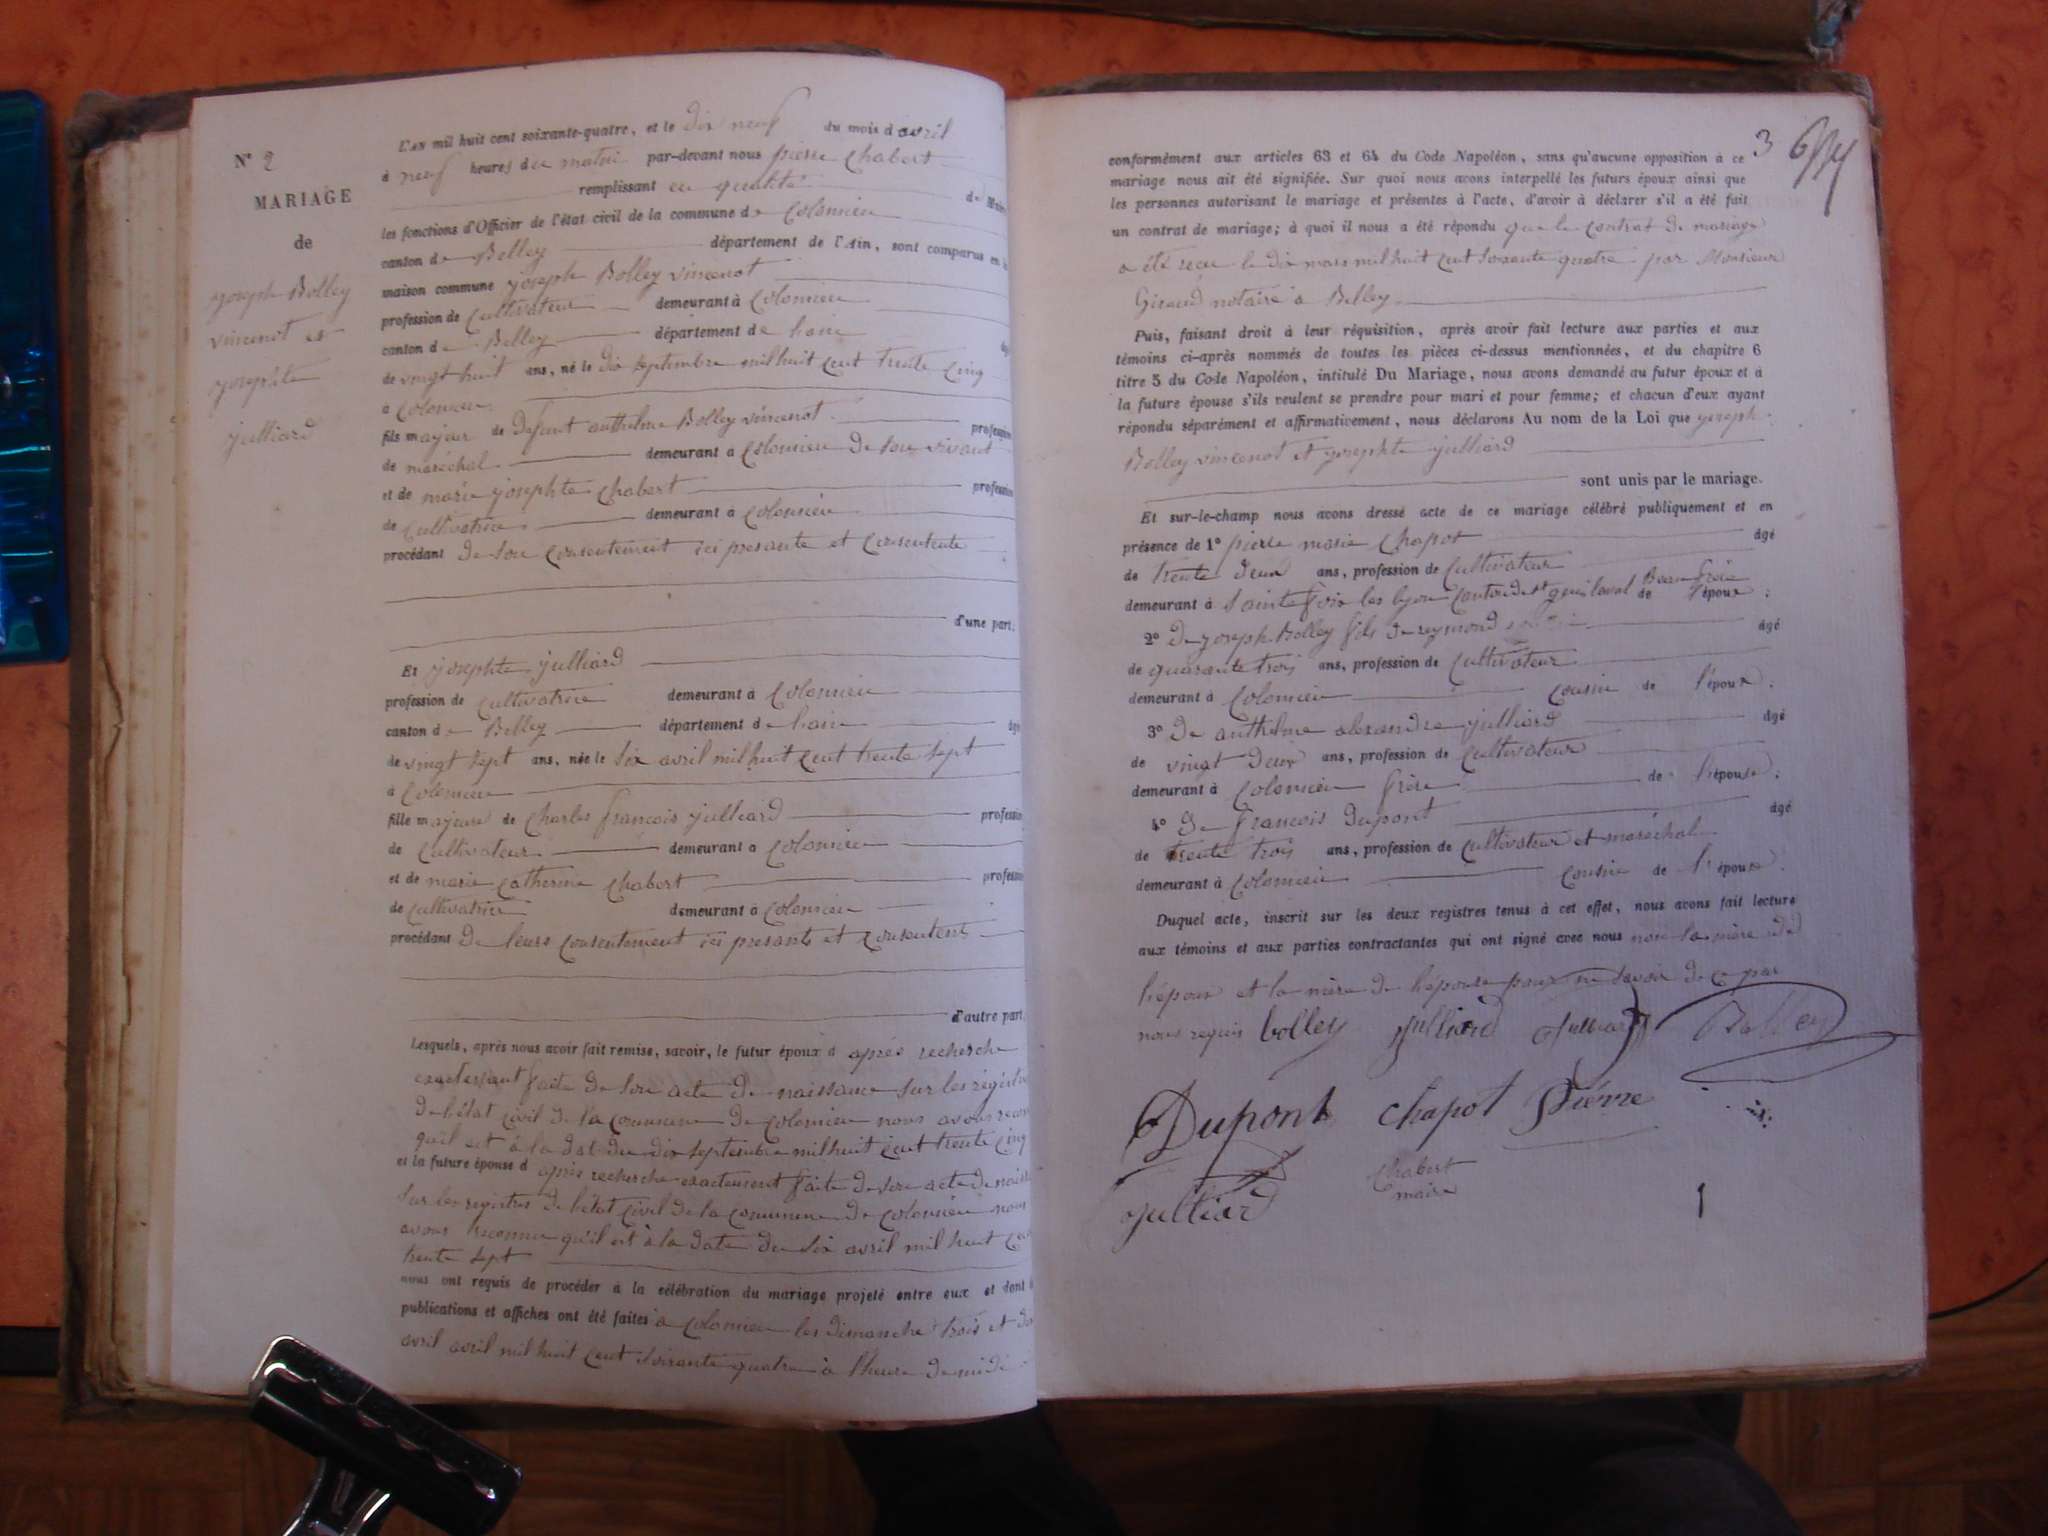 N° 2
MARIAGE
de
joseph Bolley
vincenot et
josephte
julliard
L'an mil huit cent soixante-quatre, et le dix neuf du mois d'avril
à neuf heures du matin par-devant nous pierre Chabert
remplissant en qualité de Maire
les fonctions d'Officier de l'état civil de la commune de Colomieu
canton de Belley département de l'Ain, sont comparus en la
maison commune joseph Bolley vincenot
profession de Cultivateur demeurant à Colomieu
canton de Belley département de hain âgé
de vingt huit ans, né le dix septembre mil huit cent trente cinq
à Colomieu
fils majeur de defunt anthelme Bolley vincenot profession
de maréchal demeurant à Colomieu de son vivant
et de marie josephte Chabert profession
de Cultivatrice demeurant à Colomieu
procédant de son consentement ici presante et consentente
d'une part.
Et josephte julliard
profession de cultivatrice demeurant à Colomieu
canton de Belley département de hain âgé
de vingt sept ans, née le six avril mil huit cent trente sept
à Colomieu
fille majeure de Charles francois julliard profession
de Cultivateur demeurant à Colomieu
et de marie catherine Chabert profession
de Cultivatrice demeurant à Colomieu
procédant de leurs consentement ici presants et consentent
d'autre part.
Lesquels, après nous avoir fait remise, savoir, le futur époux d après recherche
exactement faite de son acte de naissance sur les régistre
de l'état civil de la commune de Colomieu nous avons recon
qu'il est à la date du dix septembre mil huit cent trente cinq
et la future épouse d après recherche exactement faite de son acte de naiss
sur les registres de l'état civil de la commune de Colomieu nous
avons reconnu qu'il est à la date du six avril mil huit cent
trente sept
nous ont requis de procéder à la célébration du mariage projeté entre eux et dont les
publications et affiches ont été faites à Colomieu les dimanche trois et dix
avril avril mil huit cent soixante quatre à l'heure de midi
3
conformément aux articles 63 et 64 du Code Napoléon, sans qu'aucune opposition à ce
mariage nous ait été signifiée. Sur quoi nous avons interpellé les futurs époux ainsi que
les personnes autorisant le mariage et présentes à l'acte, d'avoir à déclarer s'il a été fait
un contrat de mariage; à quoi il nous a été répondu que le contrat de mariage
a été reçu le dix mars mil huit cent soixante quatre par Monsieur
Giraud notaire à Belley
Puis, faisant droit à leur réquisition, après avoir fait lecture aux parties et aux
témoins ci-après nommés de toutes les pièces ci-dessus mentionnées, et du chapitre 6
titre 5 du Code Napoléon, intitulé Du Mariage, nous avons demandé au futur époux et à
la future épouse s'ils veulent se prendre pour mari et pour femme; et chacun d'eux ayant
répondu séparément et affirmativement, nous déclarons Au nom de la Loi que joseph
Bolley vincenot et josephte julliard
sont unis par le mariage.
Et sur-le-champ nous avons dressé acte de ce mariage célébré publiquement et en
présence de 1° pierre marie Chapot âgé
de trente deux ans, profession de Cultivateur
demeurant à Sainte foix les lyon Canton de St genis laval Beau frère de l'époux;
2° de joseph Bolley fils de reymond âgé
de quarante trois ans, profession de Cultivateur
demeurant à Colomieu cousin de l'époux;
3° de anthelme alexandre julliard âgé
de vingt deux ans, profession de Cultivateur
demeurant à Colomieu frère de l'épouse;
4° de francois dupont âgé
de trente trois ans, profession de Cultivateur et maréchal
demeurant à Colomieu cousin de l'époux.
Duquel acte, inscrit sur les deux registres tenus à cet effet, nous avons fait lecture
aux témoins et aux parties contractantes qui ont signé avec nous non la mère de
l'époux et la mère de l'épouse pour ne savoir de ce par
nous requis bolley julliard julliard Bolley
Dupont chapot Pierre
julliard Chabert
maire